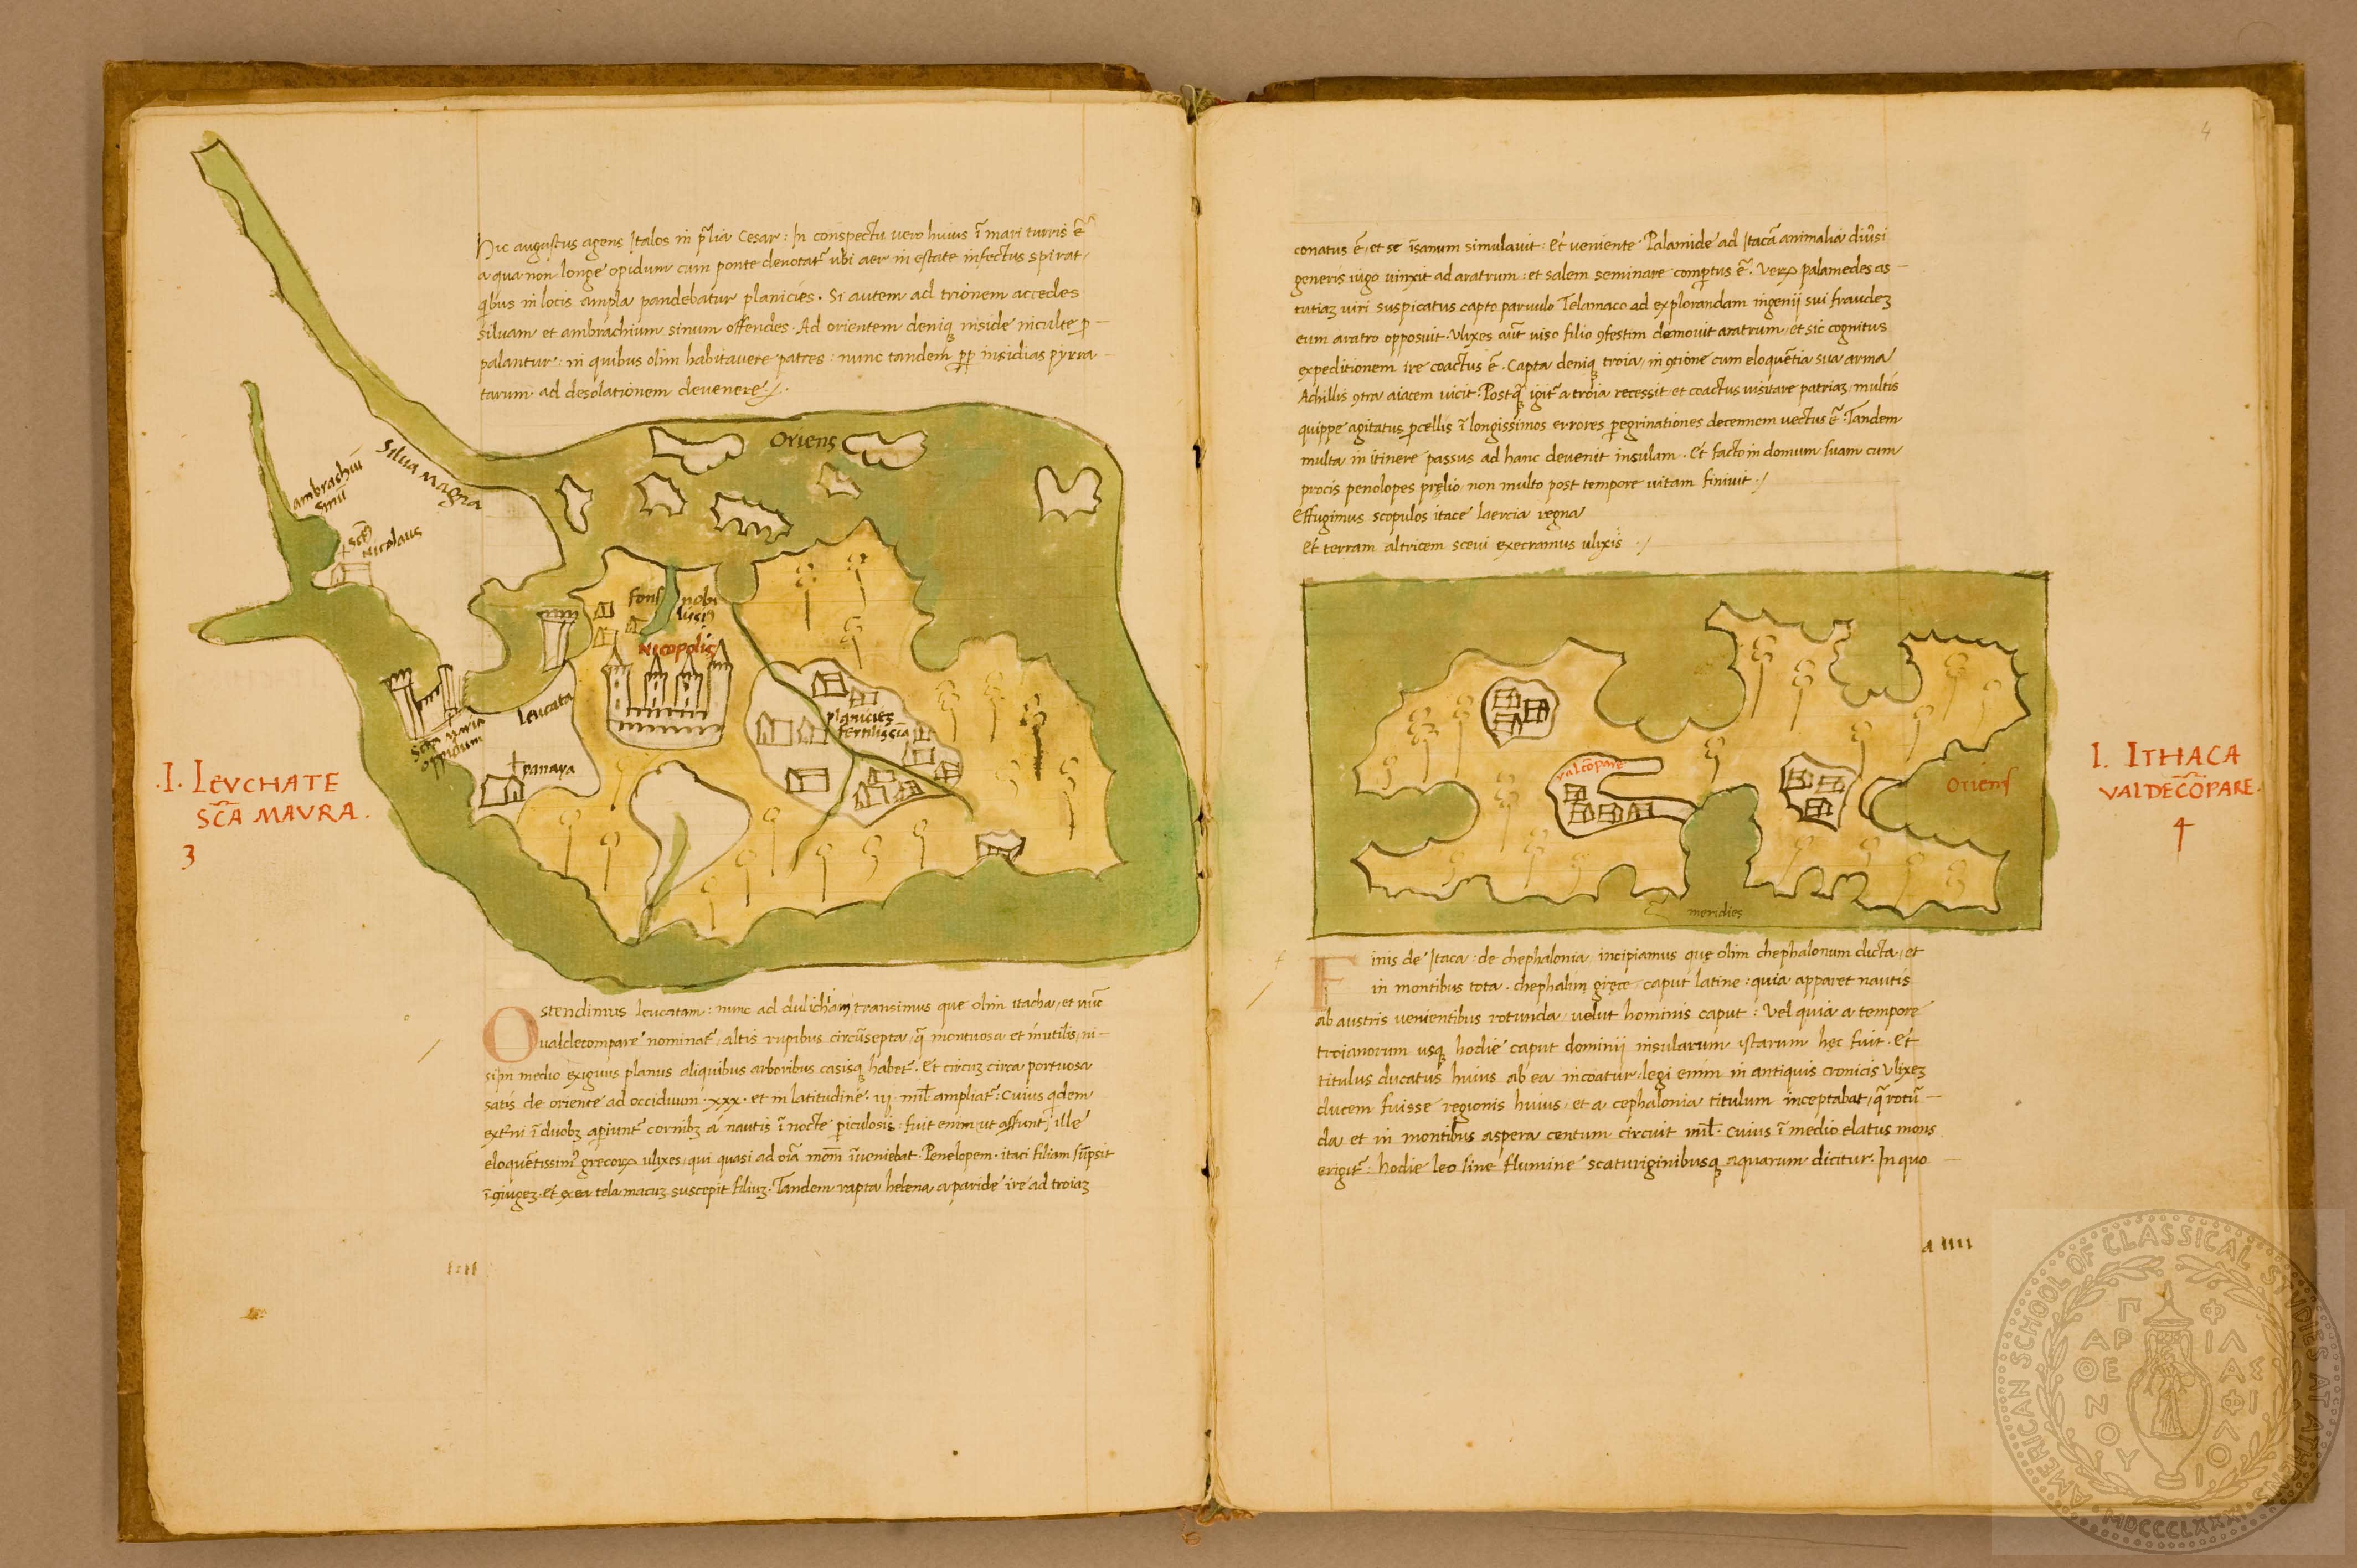 Hic augustus agens Italos in p̃lia Cesar : In conspectu vero huius ĩ mari turris ẽ
a qua non longe opidum cum ponte denotat᷑ ubi aer in estate infectus spirat,
q̇bus in locis ampla pandebatur planicies . Si autem ad trionem accedes
silvam et ambrachium sinum offendes . Ad orientem deniq; niside niculte p —
palantur : in quibus olim habitavere patres : nunc tandem pp̃ insidias pyrra
tarum ad desolationem devenere ./.
Oriens
Silva Magna
ambrachiũ
sinũ
Sc̃s
Nicolaus
fons nobi
lissi
Necopolis
Leucata
planicies
fertilissĩa
Sc̃a Maria
oppidum
panaya
.I. LEVCHATE
SC̃A MAVRA .
3
Ostendimus leucatam : nunc ad dulichiam transimus que olim itacha, et nũc
valdecompare nominat᷑, altis rupibus circũsepta, q̃ montuosa et inutilis, ni —
si in medio exiguus planus aliquibus arboribus casisq; habet᷑ . Et circuz circa portuosa
satis de oriente ad occiduum . xxx . et in latitudine . iij . mil̃ . ampliat᷑ : cuius q̇dem
ext̃ni ĩ duobz apiunt᷑ cornibz a nautis ĩ nocte piculosis : fuit enim ut assunt, ille
eloquẽtissim᷒ grecorꝝ ulixes, qui quasi ad oĩa mom̃ ĩveniebat . Penelopem . itaci filiam sũpsit
ĩ ꝯiugez . et ex ea telamacuz suscepit filiuz . Tandem rapta helena a paride ire ad troiaz
4
conatus ẽ, et se ĩsanum simulavit : Et veniente Palamide ad Itacã animalia div̉si
generis iugo vinxit ad aratrum : et salem seminare comptus ẽ . Verꝝ palamedes as —
tutiaz viri suspicatus capto parvulo Telamaco ad explorandam ingenij sui fraudez
eum aratro opposuit . Vlixes aut̃ viso filio ꝯfestim demovit aratrum, et sic cognitus
expeditionem ire coactus ẽ . Capta deniq; troia, in ꝯtione cum eloquẽtia sua arma
Achillis ꝯtra aiacem vicit . Postq̃ igit᷑ a troia recessit, et coactus visitare patriaz, multis
quippe agitatus pcellis ĩ longissimos errores pegrinationes decennem vectus ẽ . Tandem
multa in itinere passus ad hanc devenit insulam . Et facto in domum suam cum
procis penolopes pręlio, non multo post tempore vitam finivit ./
Effugimus scopulos itace laercia regna
Et terram altricem scevi execramus ulixis ./
valcõpare
Oriens
meridies
I. ITHACA
VALDECÕPARE .
4
Finis de Itaca : de chephalonia incipiamus quę olim chephalonum dicta, et
in montibus tota . chephalim gręce caput latine : quia apparet nautis
ab austris venientibus rotunda, velut hominis caput : Vel quia a tempore
troianorum usq; hodie caput dominii insularum istarum hęc fuit . Et
titulus ducatus huius ab ea incoatur : legi enim in antiquis cronicis Vlixez
ducem fuisse regionis huius, et a cephalonia titulum inceptabat, q̃ rotũ —
da et in montibus aspera centum circuit mil̃ . cuius ĩ medio elatus mons
erigit᷑ : hodie leo sine flumine scaturiginibusq; aquarum dicitur . In quo —
a IIII
AMERICAN SCHOOL OF CLASSICAL STUDIES AT ATHENS
MDCCCLXXXI
ΠΑΡΘΕΝΟΥ
ΦΙΛΑΣ
ΦΙΛΟΙ